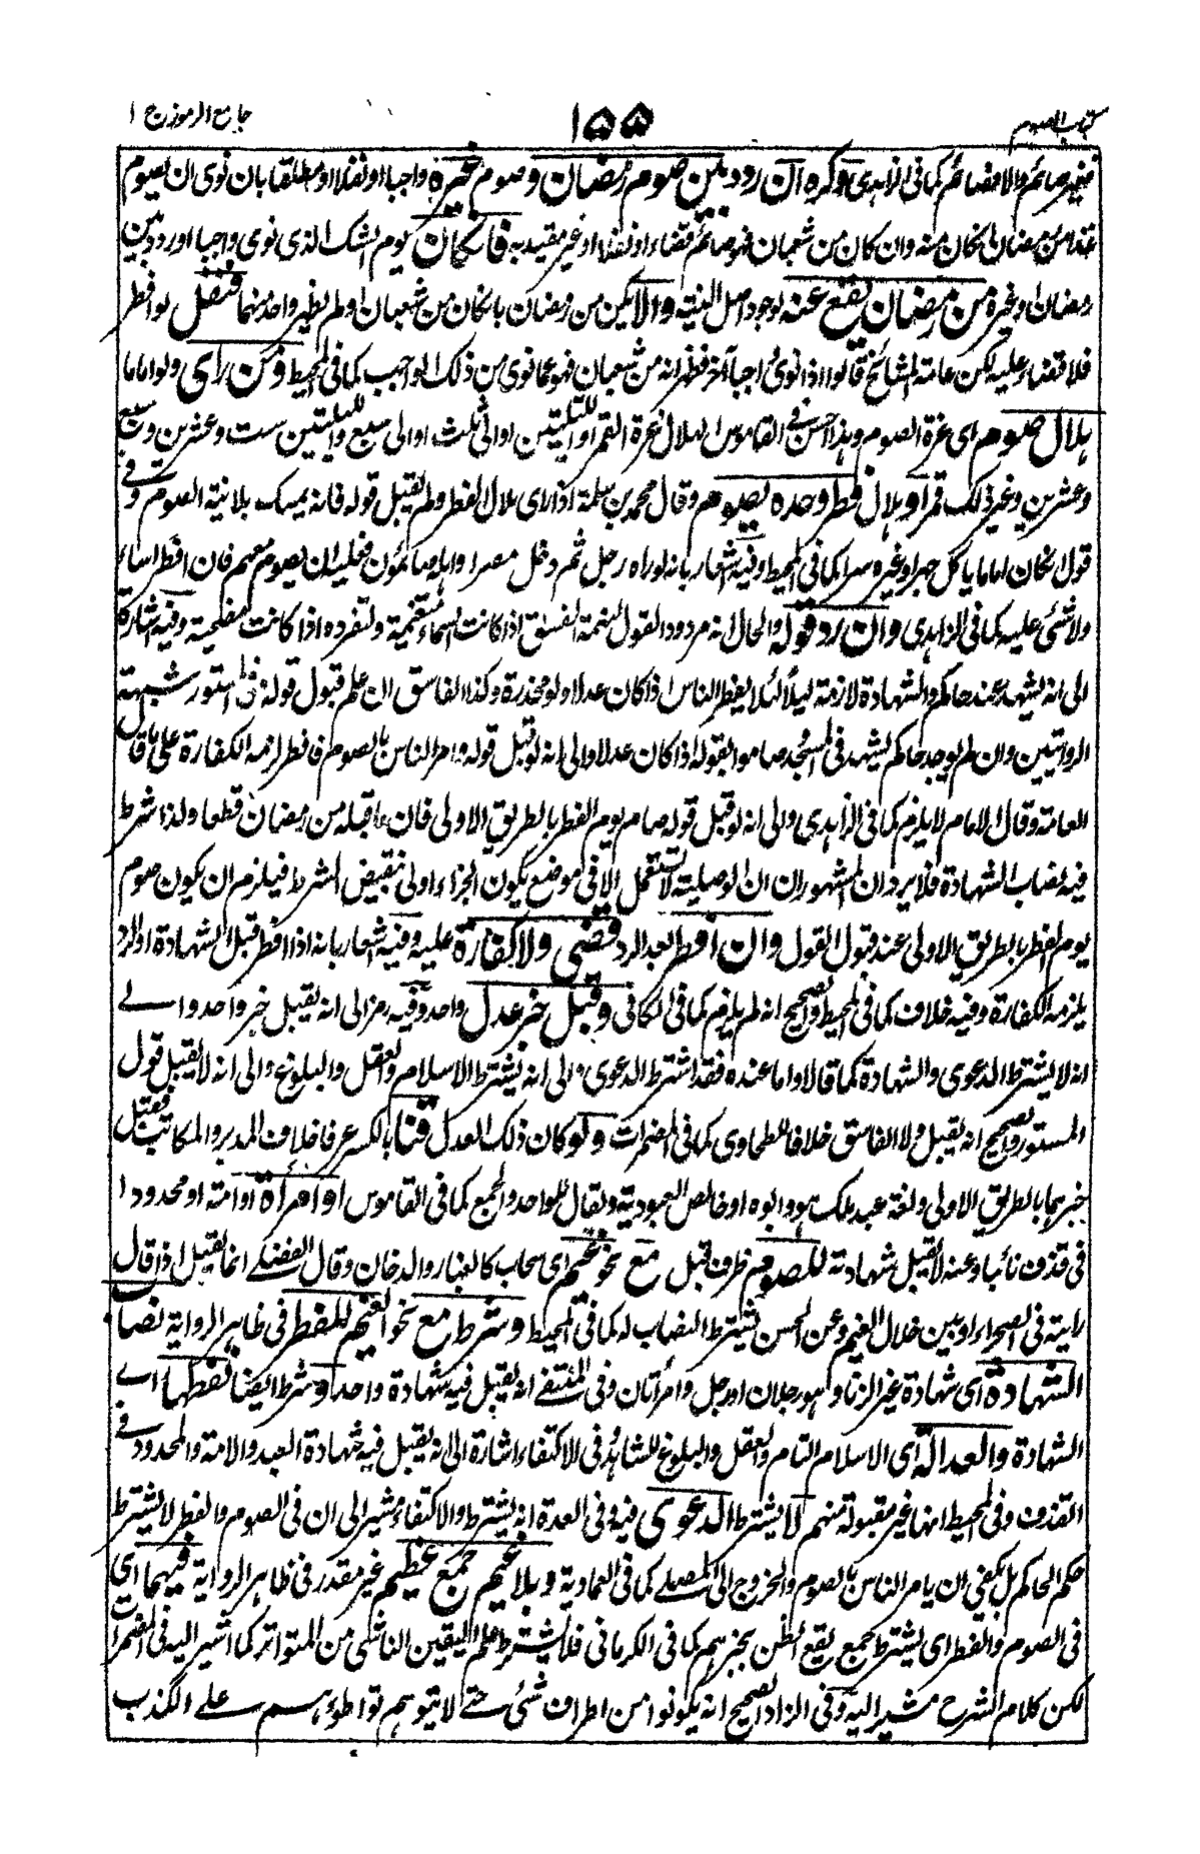 كتاب الصوم ١٥٥ جامع الرموز ج ١
فغير صائم والا فصائم كما فى الزاهدى وكره ان ردد بين صوم رمضان وصوم غيره واجبا او نفلا او مطلقا بان نوى ان يصوم
غدا من رمضان ان كان منه وان كان من شعبان فهو صائم قضاء او نفلا او غير مقيد به فان كان يوم الشك الذى نوى واجبا او ردد بين
رمضان او غيره من رمضان يقع عنه لوجود اصل النية والا يكن من رمضان بان كان من شعبان او لم يظهر واحد منهما فنفل لو افطر
فلا قضاء عليه لكن عامة المشائخ قالوا اذا نوى واجبا آخر فظهر انه من شعبان فهو عما نوى من ذلك الواجب كما فى المحيط ومن راى ولو اماما
هلال صوم اى غرة الصوم وهذا احسن فى القاموس الهلال غرة القمر او لليلتين او الى ثلث او الى سبع ولليلتين ست وعشرين وسبع
وعشرين وغير ذلك قمر او هلال فطر وحده يصوم وقال محمد بن سلمة اذا راى هلال الفطر ولم يقبل قوله فانه يمسك بلا نية الصوم وفى
قول ان كان اماما ياكل جهرا وغيره سرا كما فى المحيط وفيه اشعار بانه لو راه رجل ثم دخل مصرا واهله صائمون فعليه ان يصوم معهم فان افطر اساء
ولا شئ عليه كما فى الزاهدى وان رد قوله والحال انه مردود القول لتهمة الفسق اذا كانت السماء متغيمة ولتفرده اذا كانت مصحية وفيه اشارة
الى انه يشهد عند حاكم والشهادة لازمة ليلا لئلا يفطر الناس اذا كان عدلا ولو مخدرة وكذا الفاسق ان علم قبول قوله وفى المستور شبهة
الروايتين وان لم يوجد حاكم يشهد فى المسجد صاموا بقوله اذا كان عدلا والى انه لو قبل قوله وامر الناس بالصوم فافطر لزمه الكفارة على ما قال
العامة وقال الامام لا يلزم كما فى الزاهدى والى انه لو قبل قوله صام يوم الفطر بالطريق الاولى فان ما قبله من رمضان قطعا ولذا شرط
فيه نصاب الشهادة فلا يرد ان المشهور ان ان الوصلية لا تستعمل الا فى موضع يكون الجزاء اولى بنقيض الشرط فيلزم ان يكون صوم
يوم الفطر بالطريق الاولى عند قبول القول وان افطر بعد الرد قضى ولا كفارة عليه وفيه اشعار بانه اذا افطر قبل الشهادة او الرد
يلزمه الكفارة وفيه خلاف كما فى المحيط والصحيح انه لم يلزم كما فى الكافى وقبل خبر عدل واحد وفيه رمز الى انه يقبل خبر واحد والى
انه لا يشترط الدعوى والشهادة كما قالا واما عنده فقد اشترط الدعوى والى انه يشترط الاسلام والعقل والبلوغ والى انه لا يقبل قول
المستور والصحيح انه يقبل ولا الفاسق خلافا للطحاوى كما فى المضمرات ولو كان ذلك العدل قنا بالكسر عرفا خلاف المدبر والمكاتب فيقبل
خبرهما بالطريق الاولى ولغة عبد ملك هو وابوه او خالص العبودية ويقال للواحد والجمع كما فى القاموس او امراة او امة او محدودا
فى قذف تائبا وعنه لا يقبل شهادته للصوم ظرف قبل مع نحو غيم اى سحاب كالغبار والدخان وقال الفضلى انما يقبل اذا قال
رايته فى الصحراء او بين خلال الغيم وعن الحسن يشترط النصاب له كما فى المحيط وشرط مع نحو الغيم للفطر فى ظاهر الرواية نصاب
الشهادة اى شهادة غير الزنا وهو رجلان او رجل وامرأتان وفى المنتقى انه يقبل فيه شهادة واحد وشرط ايضا لفظها اى
الشهادة والعدالة اى الاسلام التام والعقل والبلوغ للشاهد فى الاكتفاء اشارة الى انه يقبل فيه شهادة العبد والامة والمحدود فى
القذف وفى المحيط انها غير مقبولة منهم لا يشترط الدعوى فيه وفى العدة انه يشترط والاكتفاء مشير الى ان فى الصوم والفطر لا يشترط
حكم الحاكم بل يكفى ان يامر الناس بالصوم والخروج الى المصلى كما فى العمادية وبلا غيم جمع عظيم غير مقدر فى ظاهر الرواية فيهما اى
فى الصوم والفطر اى يشترط جمع يقع الظن بخبرهم كما فى الكرمانى فلا يشترط علم اليقين الناشى من المتواتر كما اشير اليه فى المضمرات
لكن كلام الشرح مشير اليه وفى الزاد الصحيح انه يكونوا من اطراف شئ حتى لا يتوهم تواطؤهم على الكذب